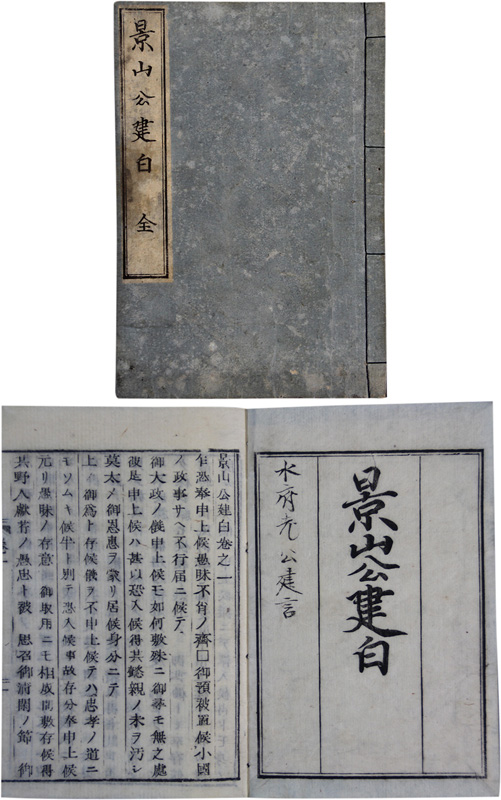 景山公建白 全
景山公建白
水府老公建言
景山公建白卷之一
乍恐奉申上候愚昧不肖ノ齊□御預被置候小國
ノ政事サヘ不行届ニ候テ、
御大政ノ儀申上候モ如何敷殊ニ御尋モ無之處
彼是申上候ハ甚以恐入候得共懿親ノ末ヲ汚シ
莫太ノ御恩惠ヲ蒙リ居候身分ニテ
上ノ御爲ト存候儀ヲ不申上候テハ忠孝ノ道ニ
モソムキ候半ト別テ恐入候事故存分奉申上候
元リ愚昧ノ存意 御取用ニモ相成間敷存候得
共野人獻芹ノ愚忠ト被 思召御淸閑ノ節 御